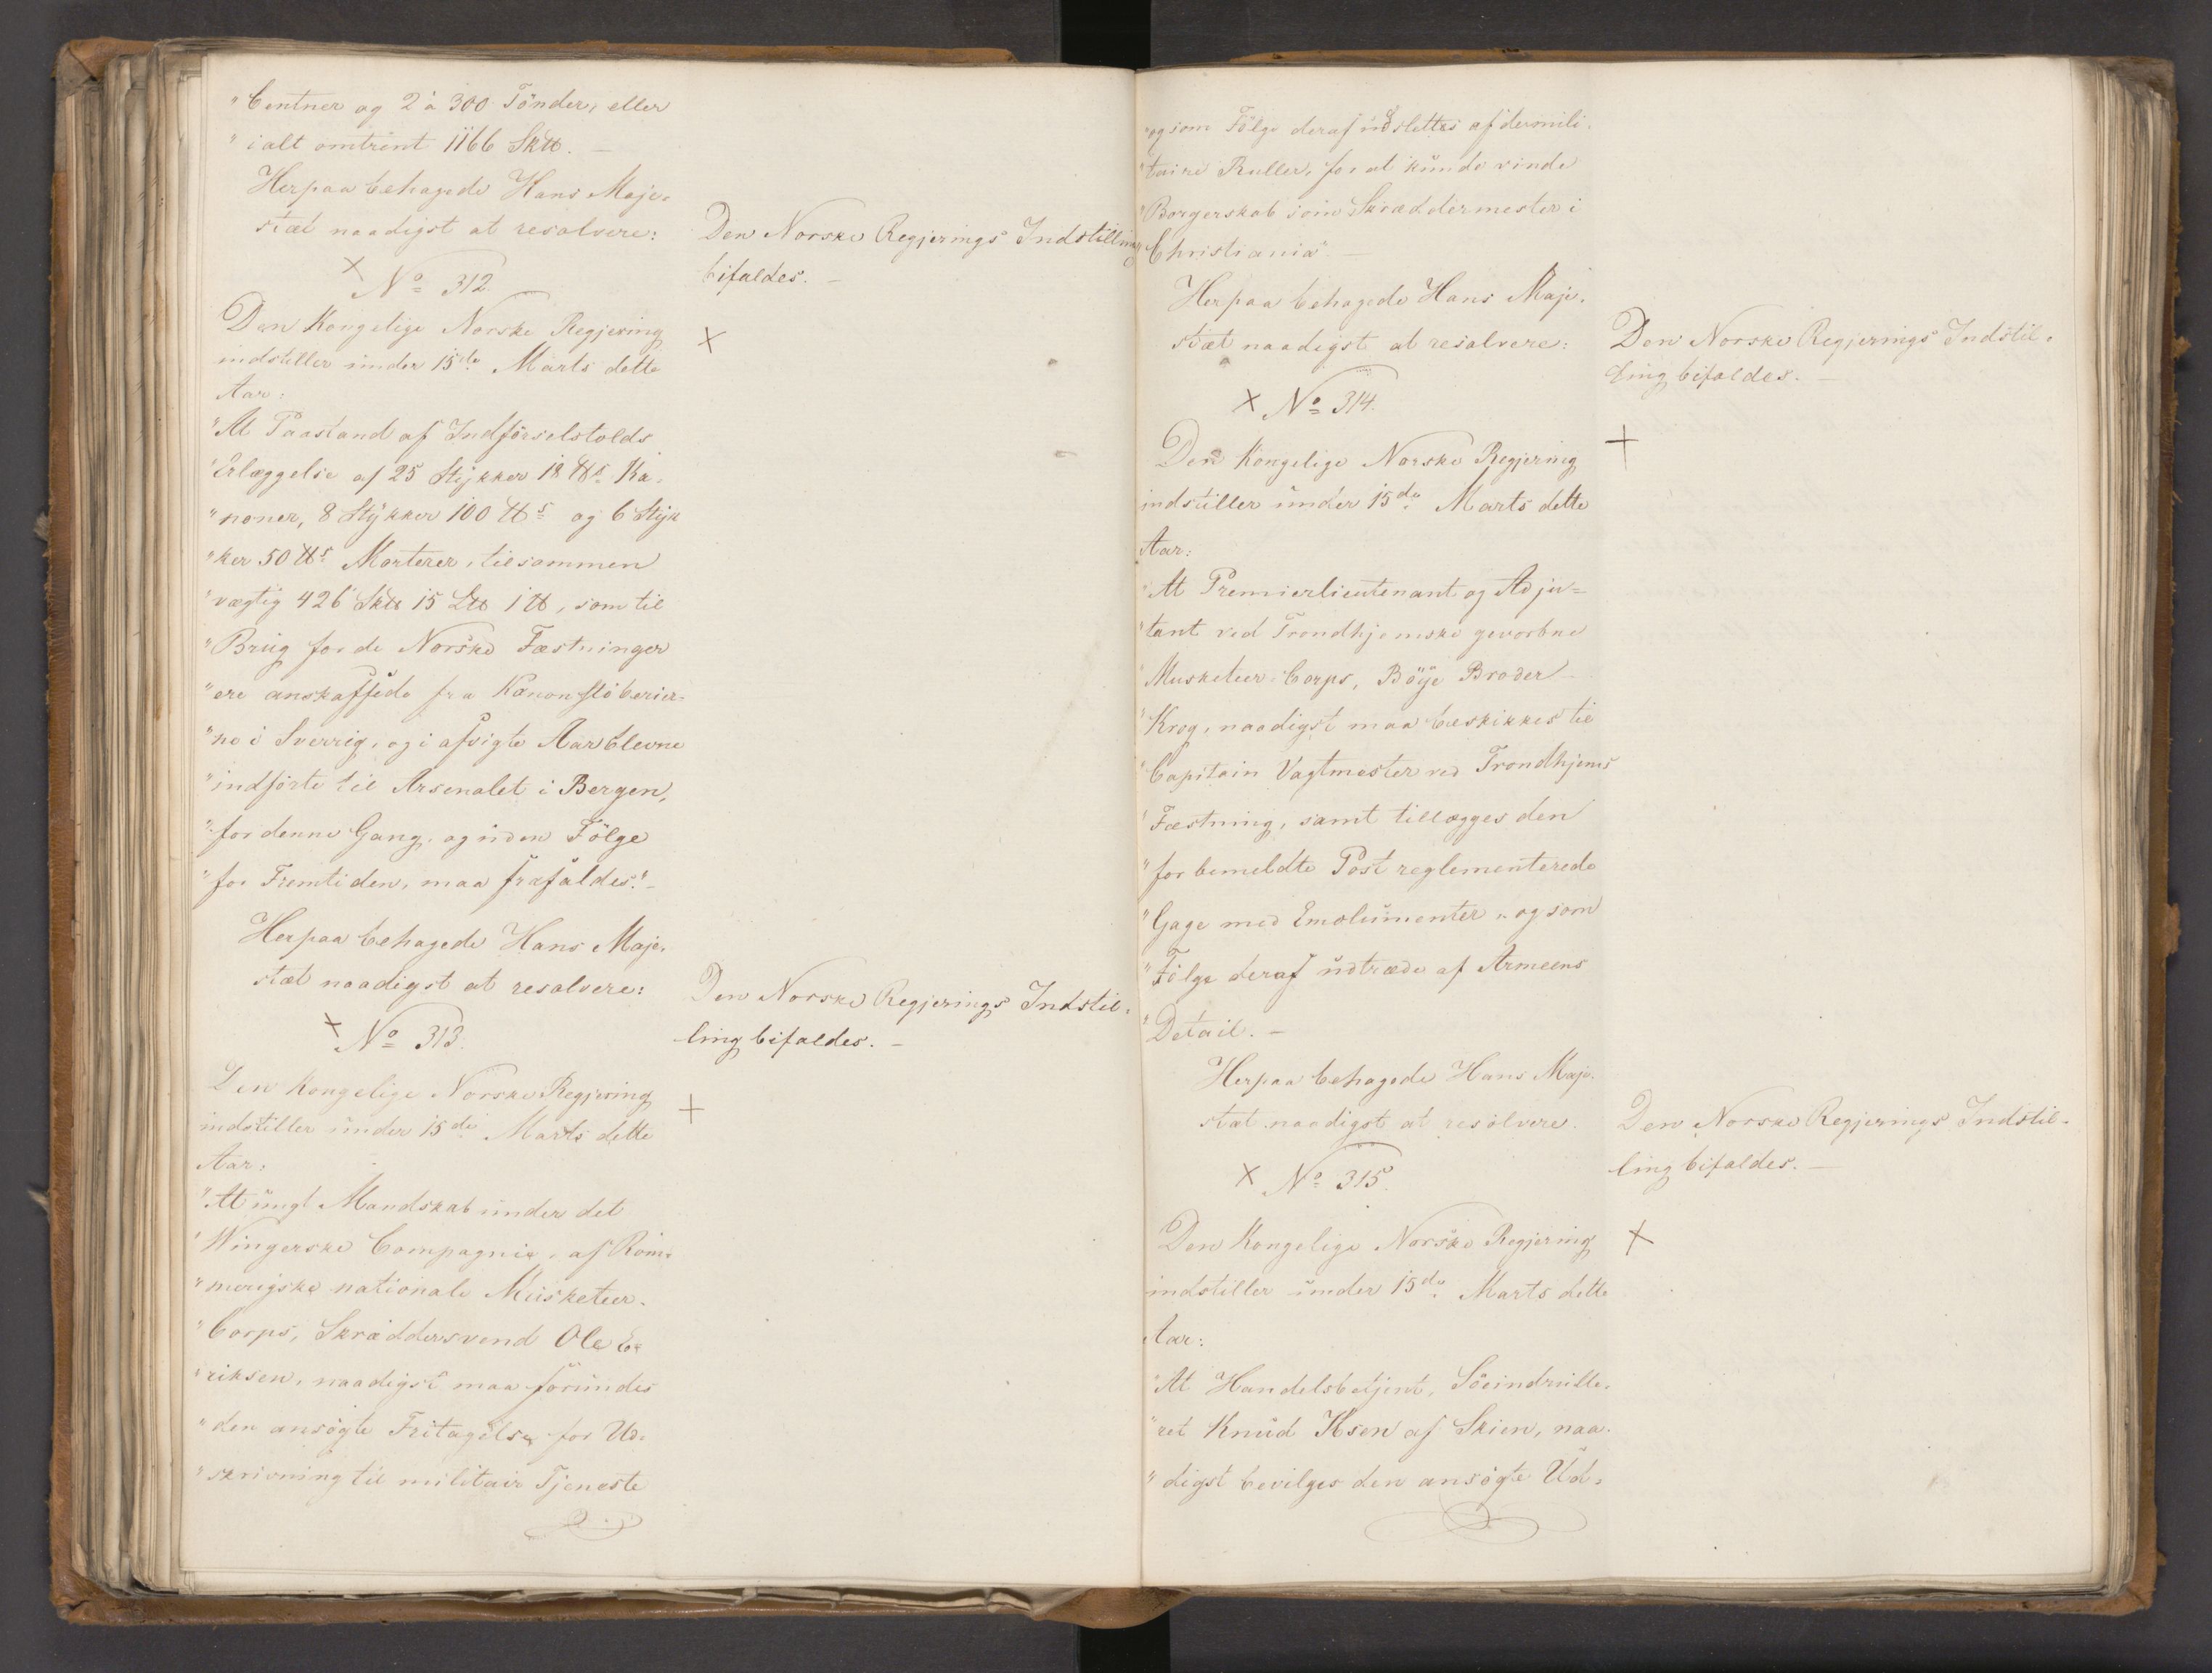 "Centner og 2 à 300 Tönder, eller
"ialt omtrent 1166 Sk℔. —
Herpaa behagede Hans Maje-
stæt naadigst at resolvere:
Den Norske Regjerings Indstilling
bifaldes. —
× No 312.
Den Kongelige Norske Regjering
×
indstiller under 15de Marts dette
Aar:
"At Paastand af Indförselstolds
"Erlæggelse af 25 Stykker 18 ℔s Ka-
"noner, 8 Stykker 100 ℔s og 6 Styk
"ker 50 ℔s Morterer, tilsammen
"vægtig 426 Sk℔ 15 L℔ 1 ℔, som til
"Brug for de Norske Fæstninger
"ere anskaffede fra Kanonstöberier-
"ne i Sverrig, og i afvigte Aar blevne
"indförte til Arsenalet i Bergen,
"for denne Gang, og uden Fölge
"for Fremtiden, maa frafaldes." —
Herpaa behagede Hans Maje-
stæt naadigst at resolvere:
Den Norske Regjerings Indstil-
ling bifaldes. —
× No 313.
Den Kongelige Norske Regjering
+
indstiller under 15de Marts dette
Aar:
"At ungt Mandskab under det
"Wingerske Compagnie, af Rom-
"merigske nationale Musketeer-
"Corps, Skræddersvend Ole E-
"riksen, naadigst maa forundes
"den ansögte Fritagelse for Ud-
"skrivning til militair Tjeneste
"og som Fölge deraf udslettes af de mili-
"taire Ruller, for at kunde vinde
"Borgerskab som Skræddermester i
"Christiania" —
Herpaa behagede Hans Maje-
stæt naadigst at resolvere:
Den Norske Regjerings Indstil-
ling bifaldes. —
× No 314.
Den Kongelige Norske Regjering
+
indstiller under 15de Marts dette
Aar:
"At Premierlieutenant og Adju-
"tant ved Trondhjemske gevorbne
"Musketeer-Corps, Böye Broder
"Krog, naadigst maa beskikkes til
"Capitain Vagtmester ved Trondhjems
"Fæstning, samt tillægges den
"for bemeldte Post reglementerede
"Gage med Emolumenter, og som
"Fölge deraf udtræde af Armeens
"Detail. —
Herpaa behagede Hans Maje-
stæt naadigst at resolvere.
Den Norske Regjerings Indstil-
ling bifaldes. —
× No 315.
Den Kongelige Norske Regjering
×
indstiller under 15de Marts dette
Aar:
"At Handelsbetjent, Söeindrulle-
"ret Knud Ksen af Skien, naa-
"digst bevilges den ansögte Ud-